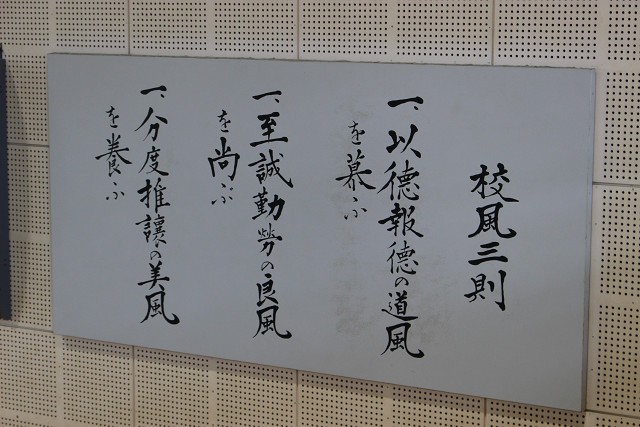 校風三則
一、以德報德の道風
を慕ふ
一、至誠勤勞の良風
を尚ぶ
一、分度推讓の美風
を養ふ